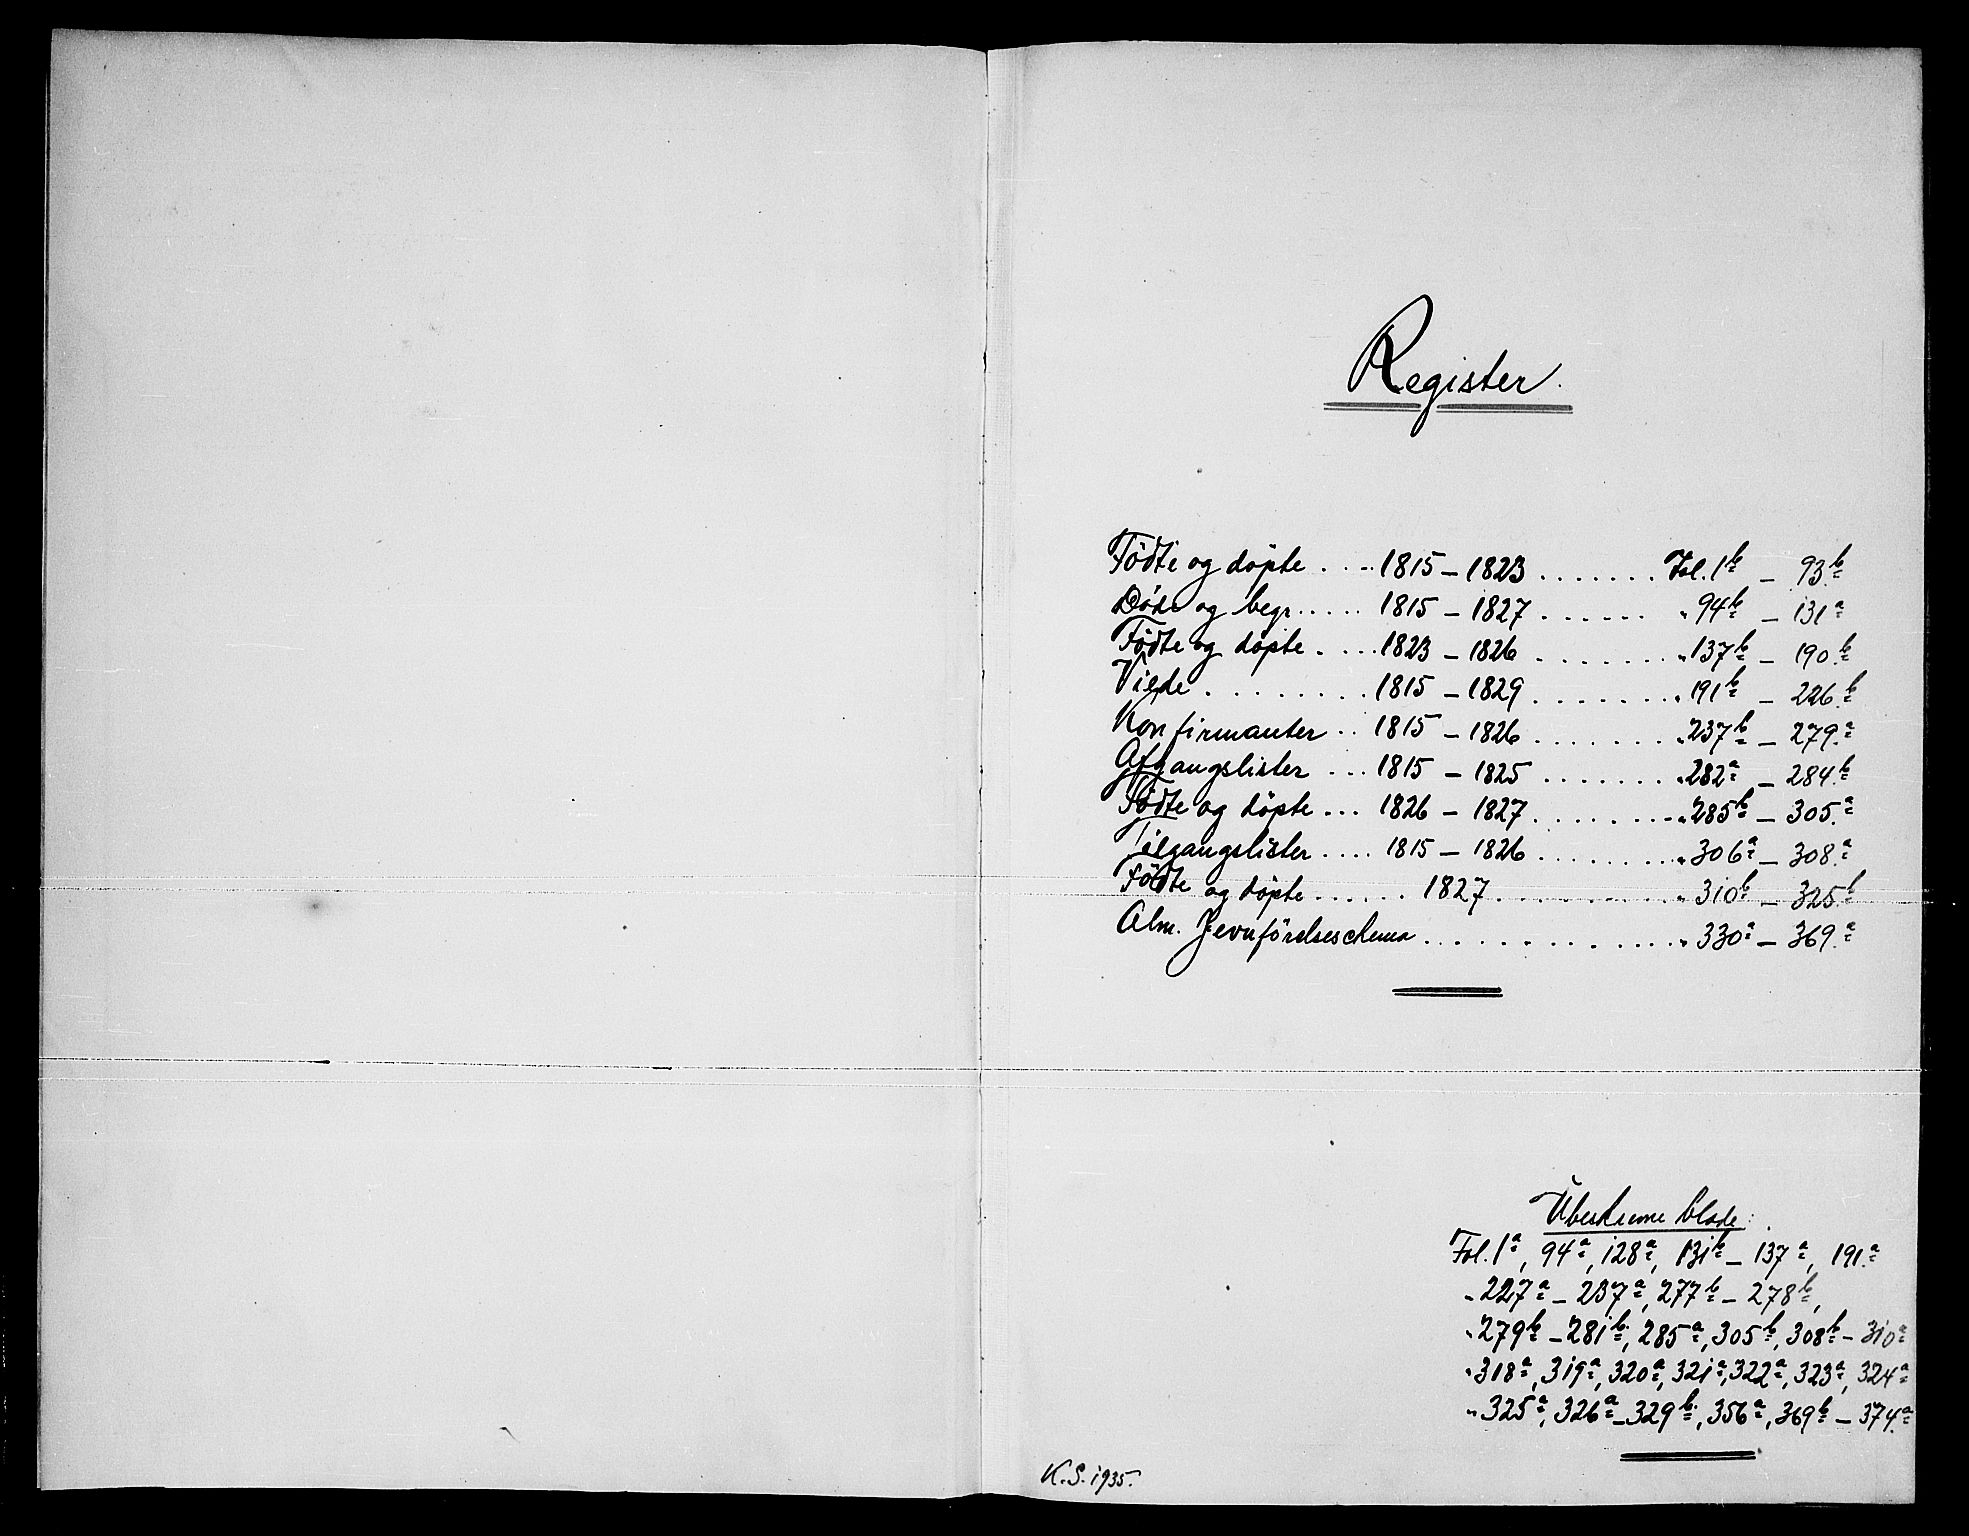 Register.
Födte og döpte . . . . 1815 – 1823 . . . . . . . Fol. 1b – 93.b
Döde og begr. . . . . . 1815 – 1827 . . . . . . " 94b – 131a
Födte og döpte . . . . 1823 – 1826 . . . . . . . " 137b – 190.b
Viede . . . . . . . . . 1815 – 1829 . . . . . . . " 191b – 226.b
Konfirmanter . . 1815 – 1826 . . . . . . . " 237b – 279.a
Afgangslister . . . 1815 – 1825 . . . . . . . " 282a – 284.b
Födte og döpte . . . 1826 – 1827 . . . . . . . . " 285b – 305.a
Tilgangslister . . . . 1815 – 1826 . . . . . . . . " 306a – 308.a
Födte og döpte . . . . . . 1827 . . . . . . . . . . " 310b – 325.b
Alm. Jevnförelseschema . . . . . . . . . . . . . . " 330a – 369.a
Ubeskrevne blade:
Fol. 1a, 94a, 128a, 131b – 137a, 191.a
" 227a – 237a, 277b – 278b,
" 279b – 281b, 285a, 305b, 308b – 310a
" 318a, 319a, 320a, 321a, 322a, 323a, 324a
" 325a, 326a – 329b, 356a, 369b – 374.a
K.S. 1935.